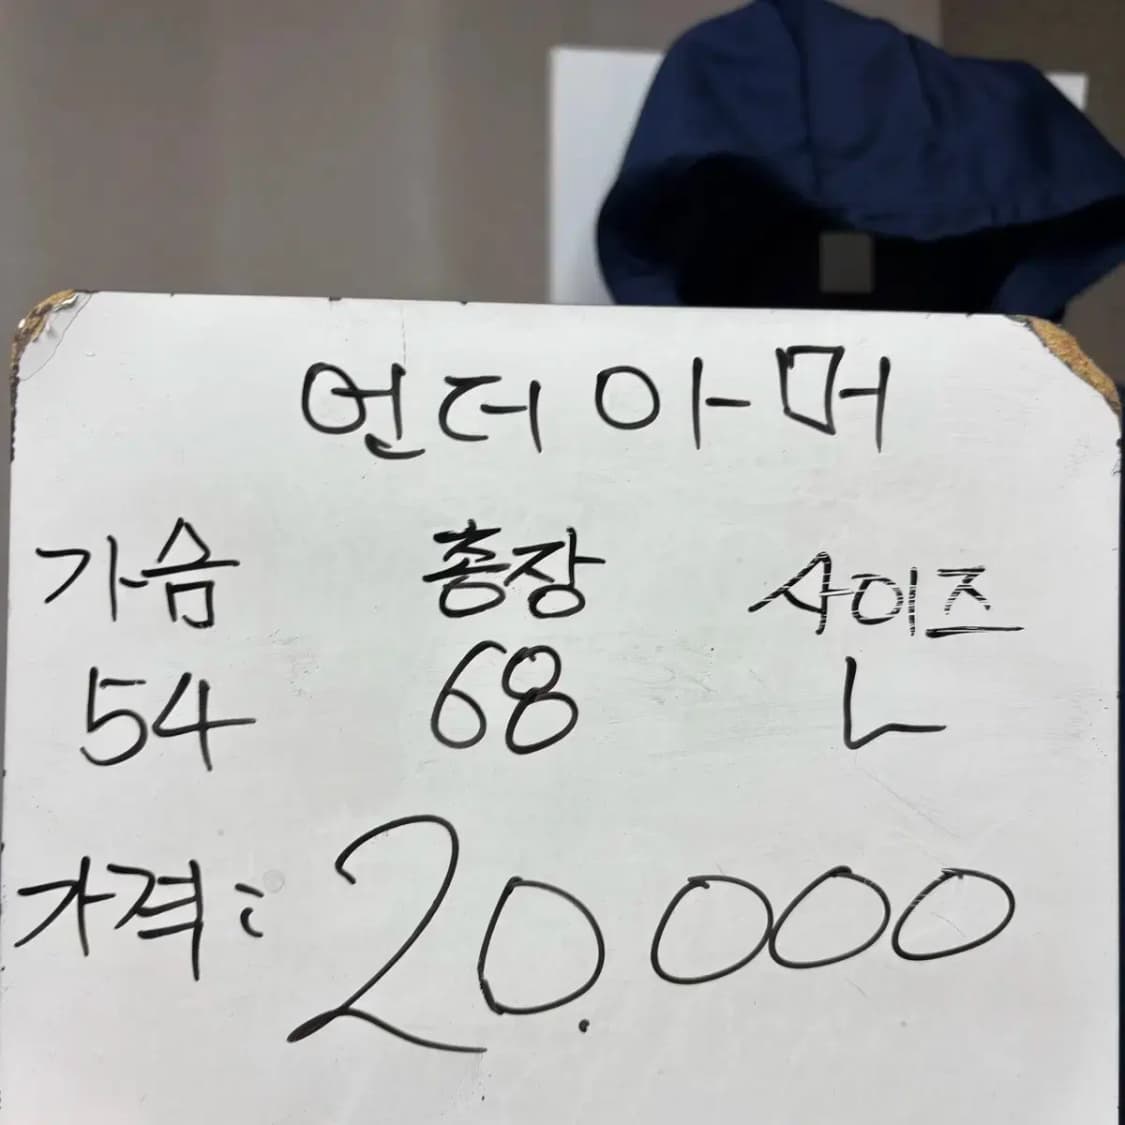 언더아머
가슴 총장 사이즈
54 68 L
가격: 20.000